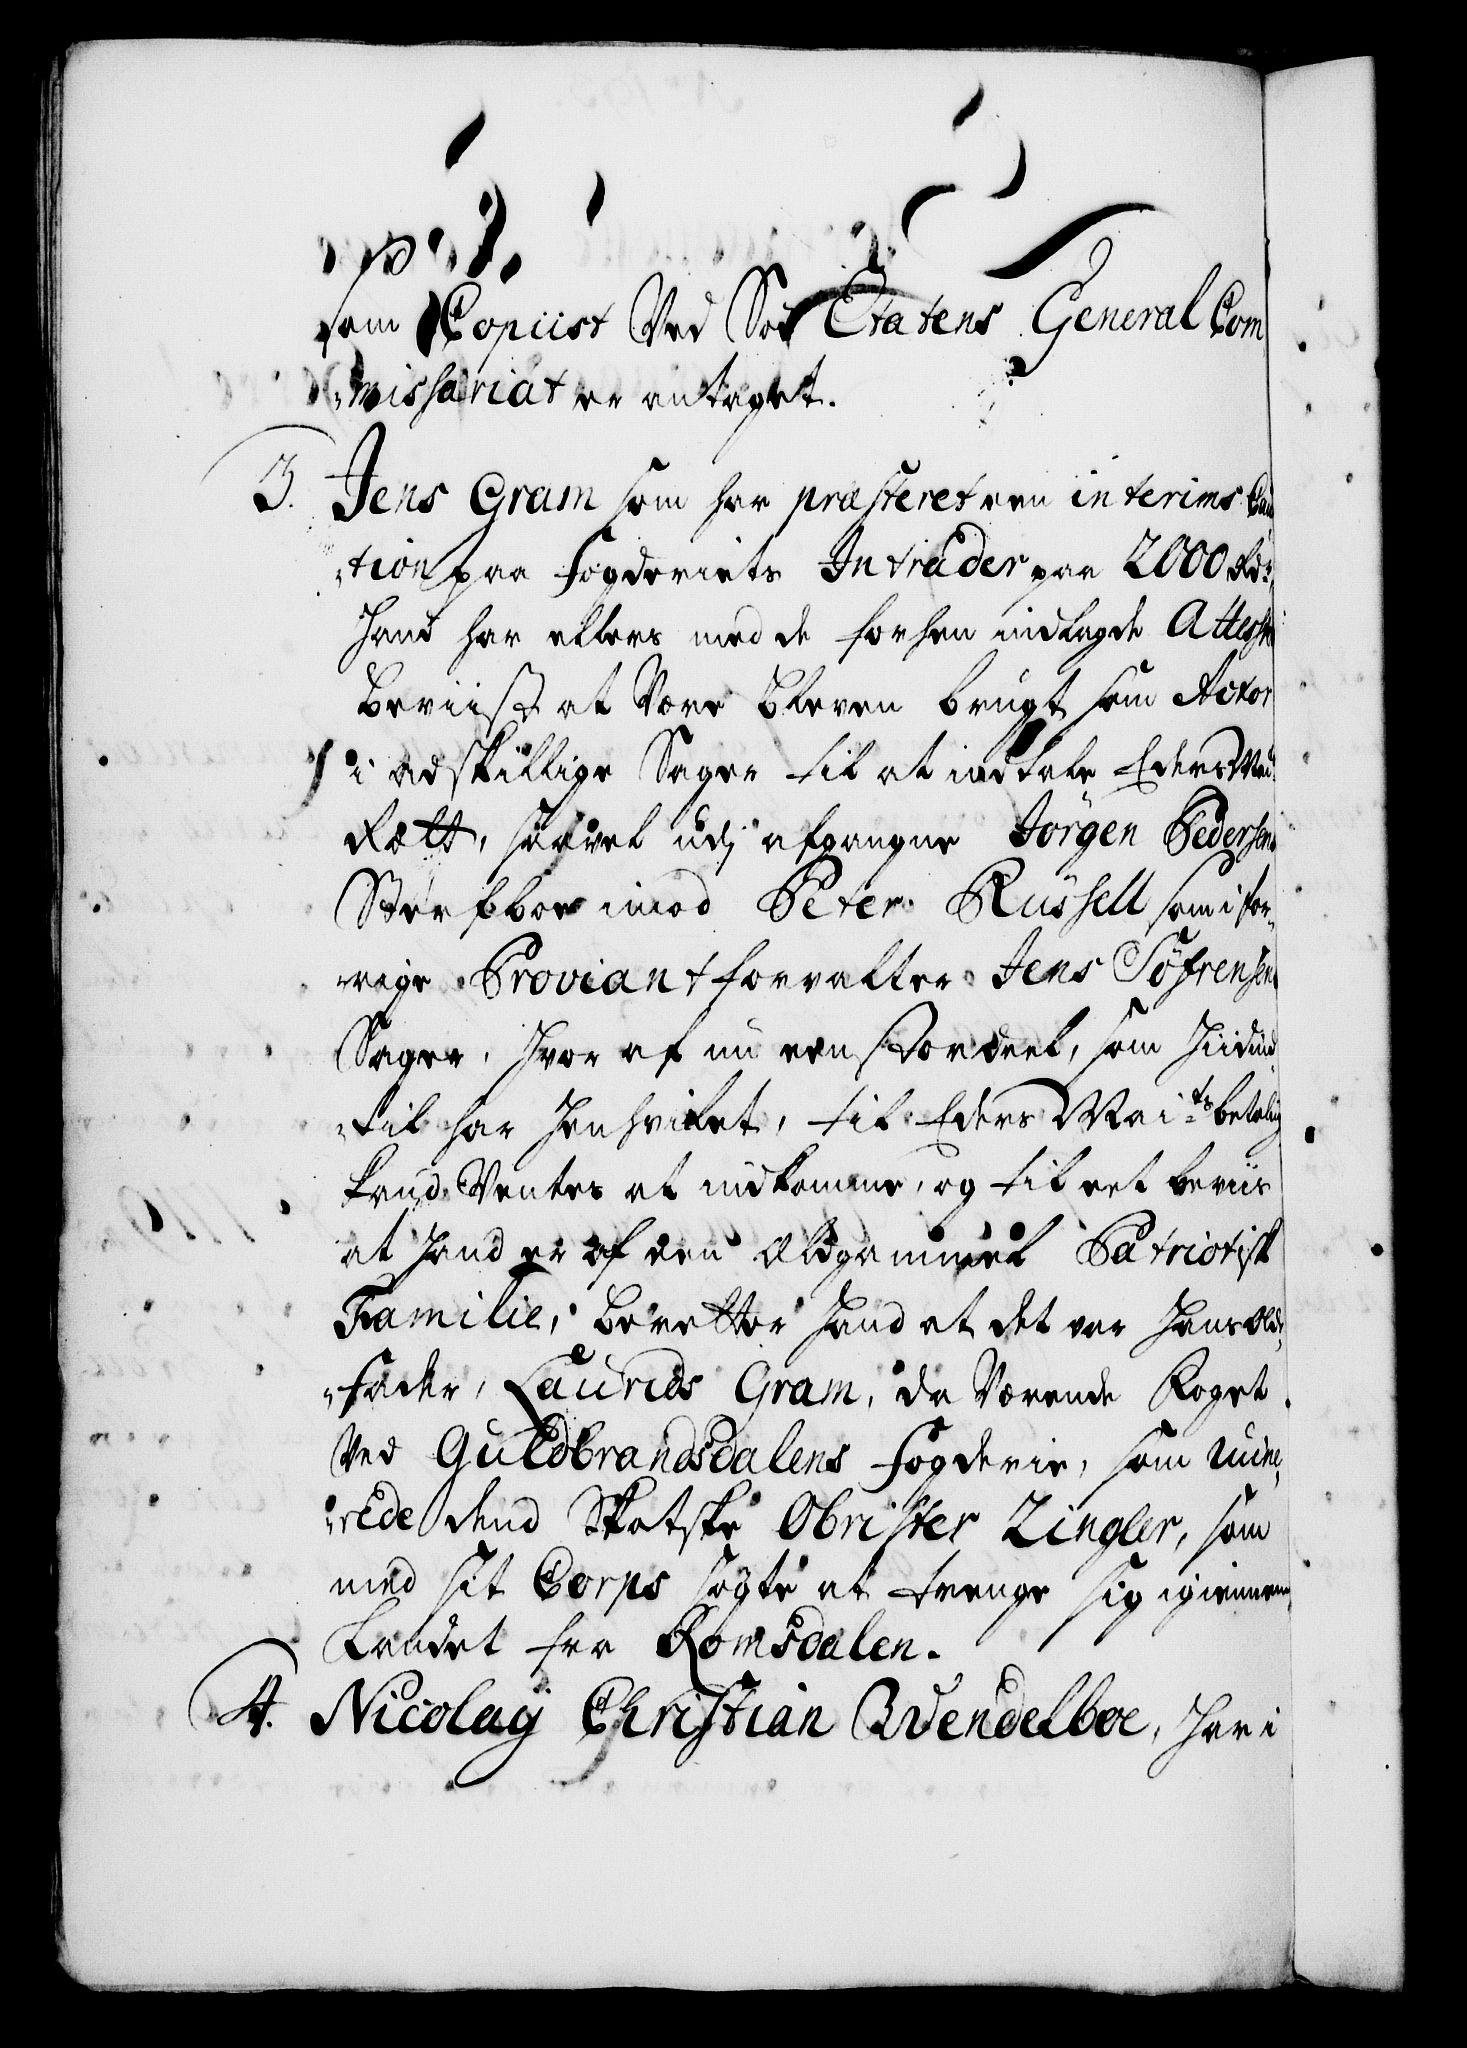 som Copiist Ved Söe Etatens General Com
-missariat er antaget.
3. Jens Gram som har præsteret een interims Cau
-tion paa Fogderiets Intrader paa 2000 Rdr,
Hand har ellers med de forhen indlagde Attester
beviist at Være bleven brugt som Actor
i adskillige Sager til at indtale Eders May
Rætt, saavel udj afgangne Jörgen Pedersens
Sterfboe imod Peter Russell som i for-
-rige Proviantforvalter Jens Söfrensens
Sager, hvor af nu een stor deel, som hidind
-til har henhvilet, til Eders Mai.ts betaling
kand Ventes at indkomme, og til eet beviis
at hand er af een Ældgammel Patriotisk
Familie, beretter hand at det var hans Olde
-fader, Laurids Gram, da Værende Foget
Ved Guldbrandsdalens Fogderie, som
dend Skotske Obrister Zingler, som
med sit Corps sögte at trenge sig igiennem
Landet fra Romsdalen.
4. Nicolaij Christian Wendelboe, har i